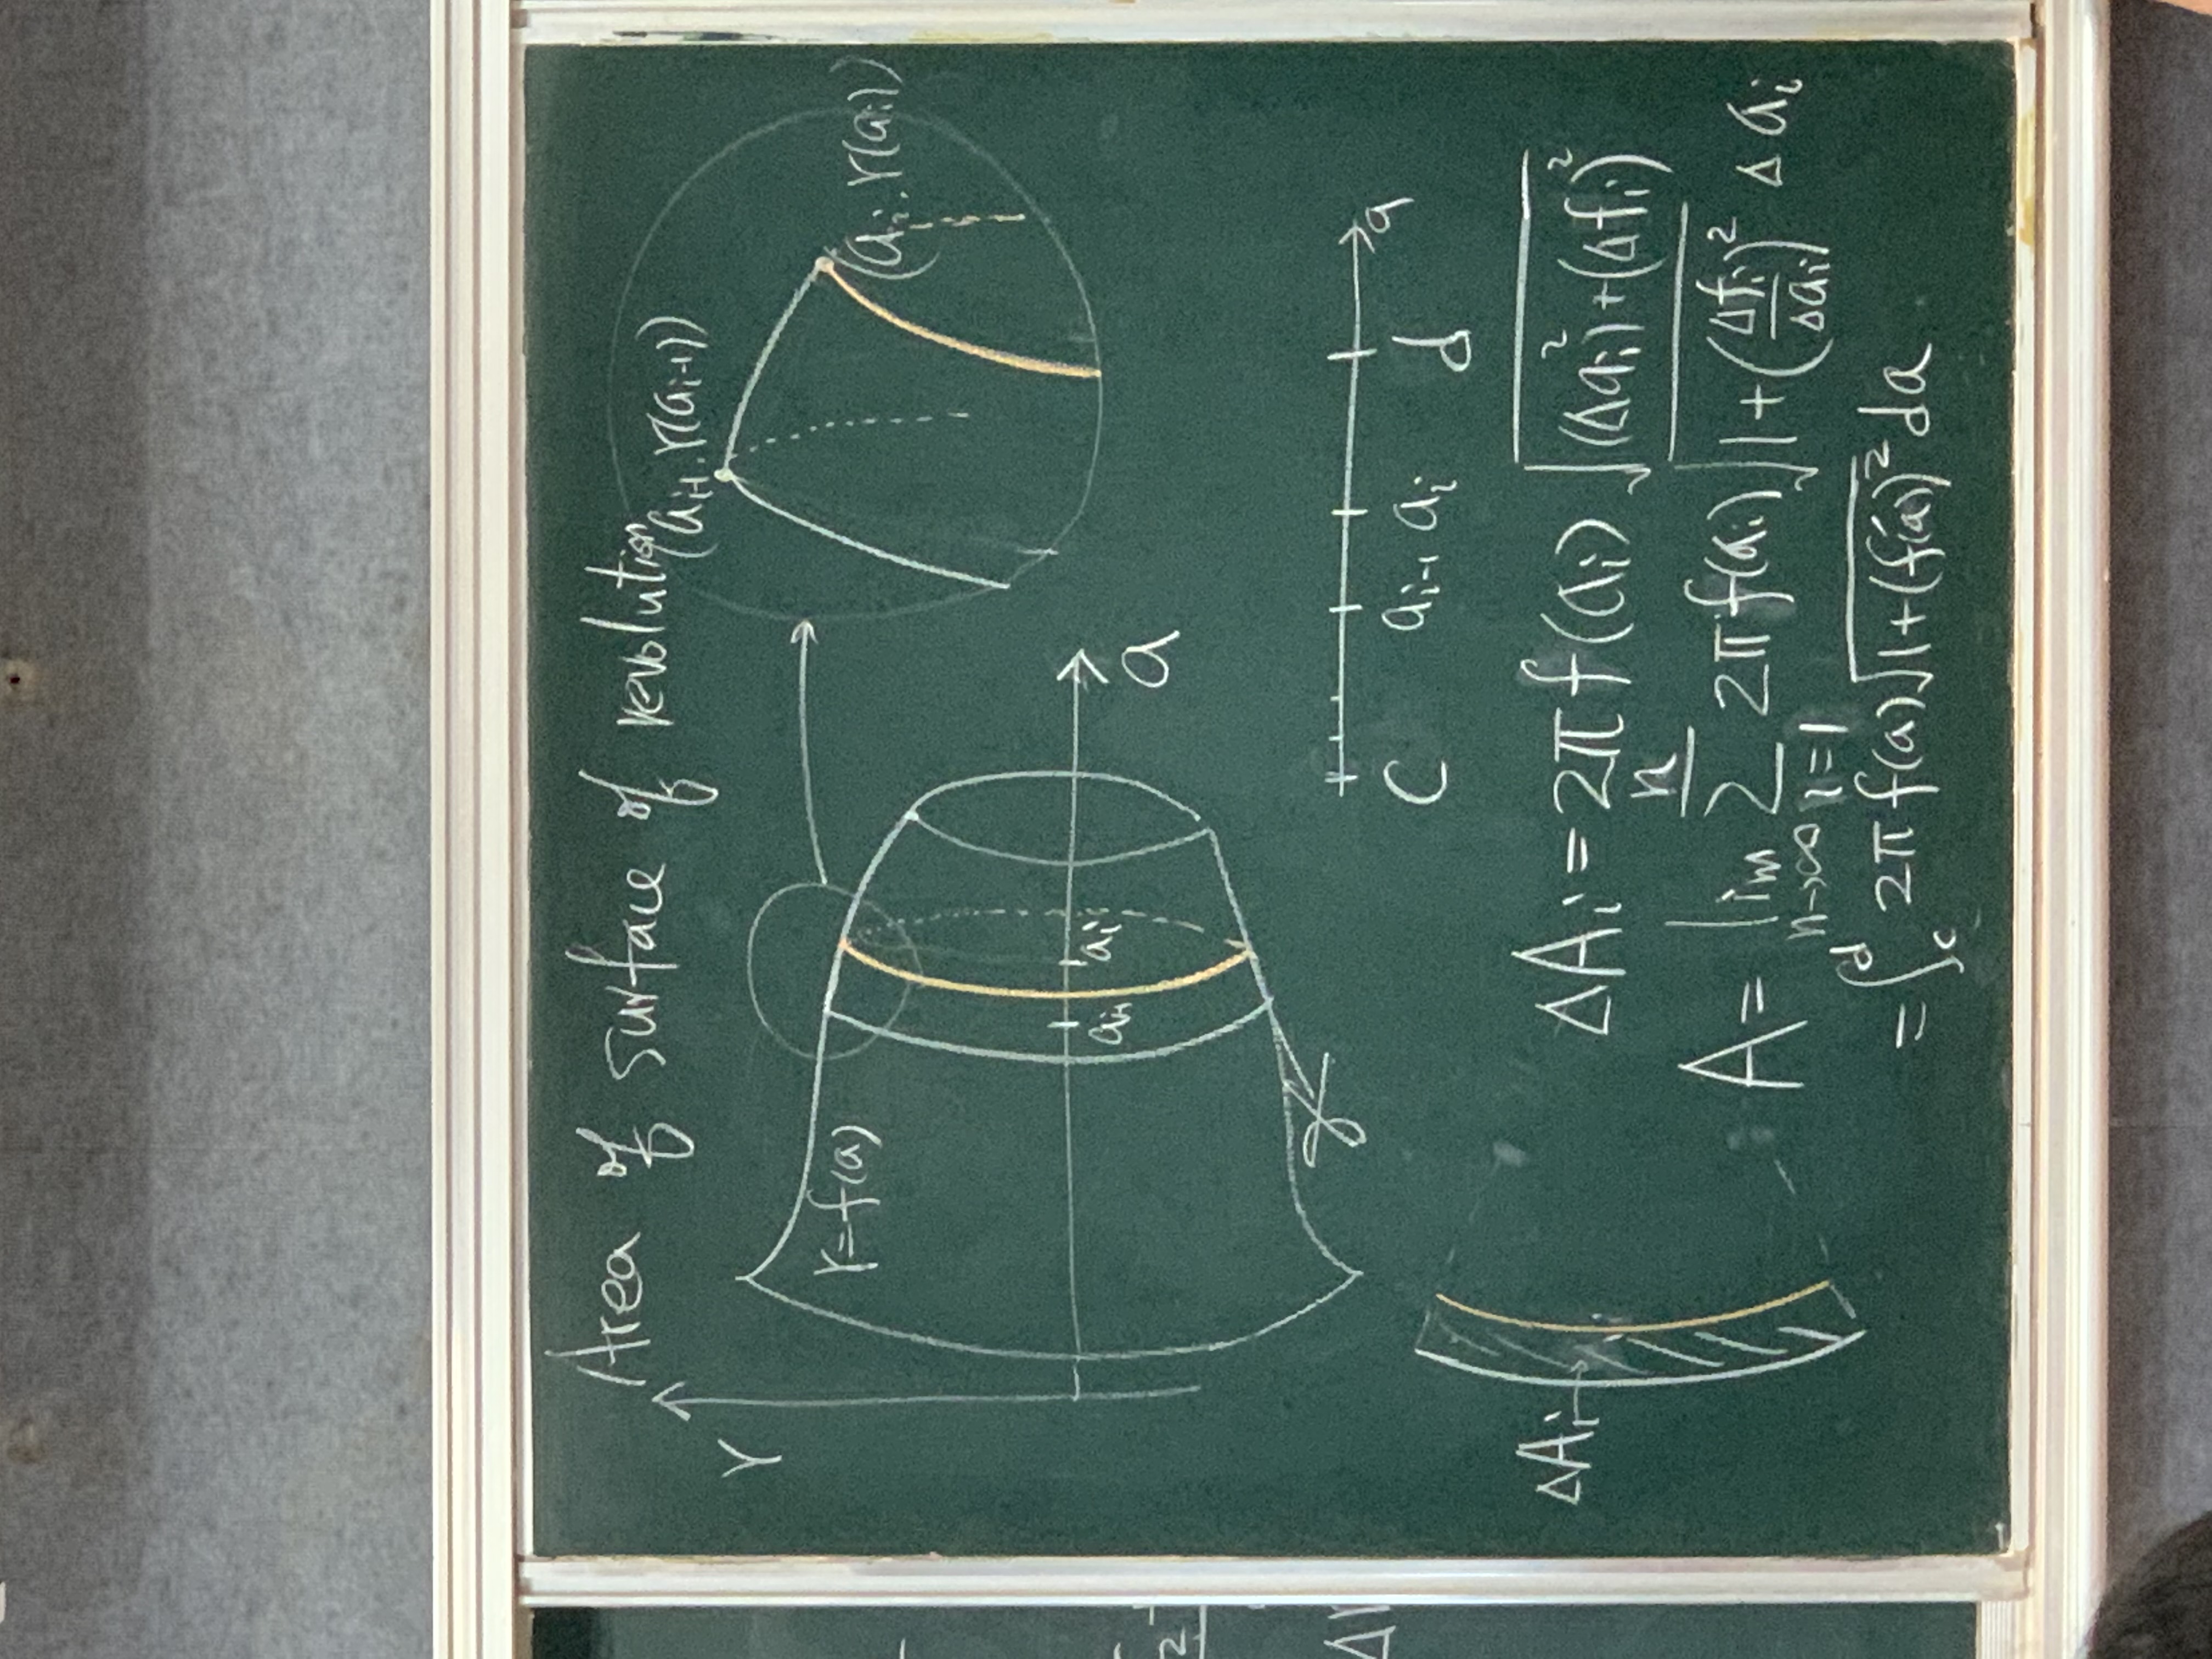 Area of Surface of revolution
(aᵢ₋₁, r(aᵢ₋₁))
(aᵢ, r(aᵢ))
r
r=f(a)
aᵢ₋₁ aᵢ
a
c aᵢ₋₁ aᵢ d a
ΔAᵢ
ΔAᵢ = 2π f(aᵢ) √((Δaᵢ)² + (Δfᵢ)²)
A = lim n→∞ Σ i=1 n 2π f(aᵢ) √(1+(Δfᵢ/Δaᵢ)²) Δaᵢ
= ∫_c^d 2π f(a) √(1+(f'(a))²) da